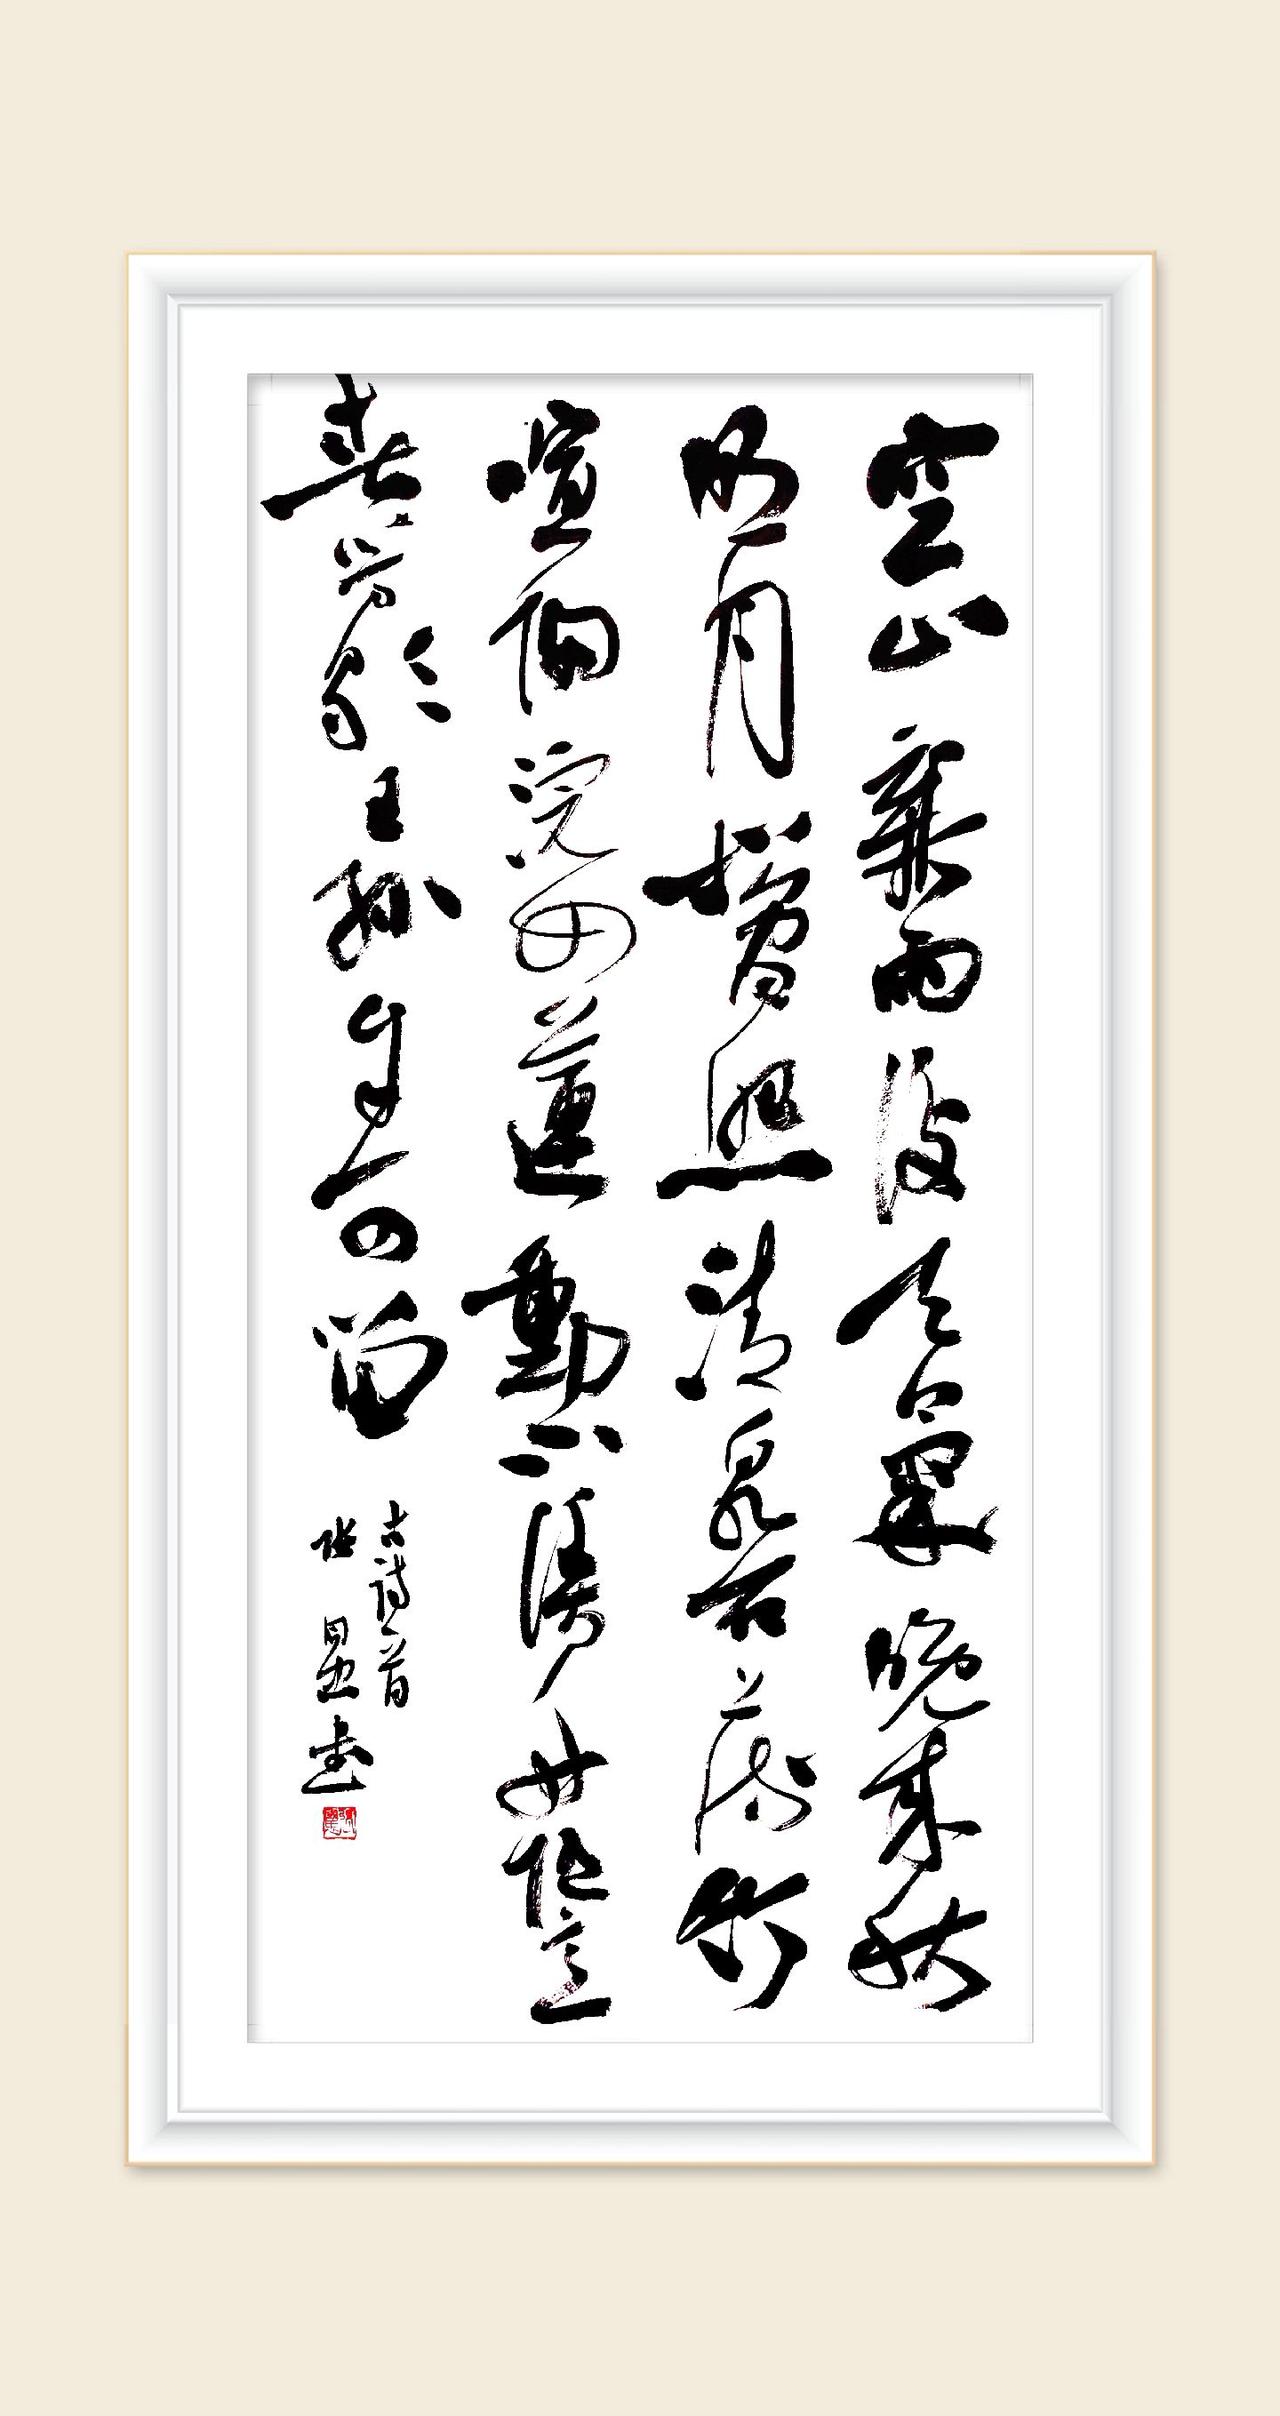 空山新雨後天氣晚來秋
明月松間照清泉石上流竹
喧歸浣女蓮動下漁舟隨意
春芳歇王孫自可留
古詩一首
書